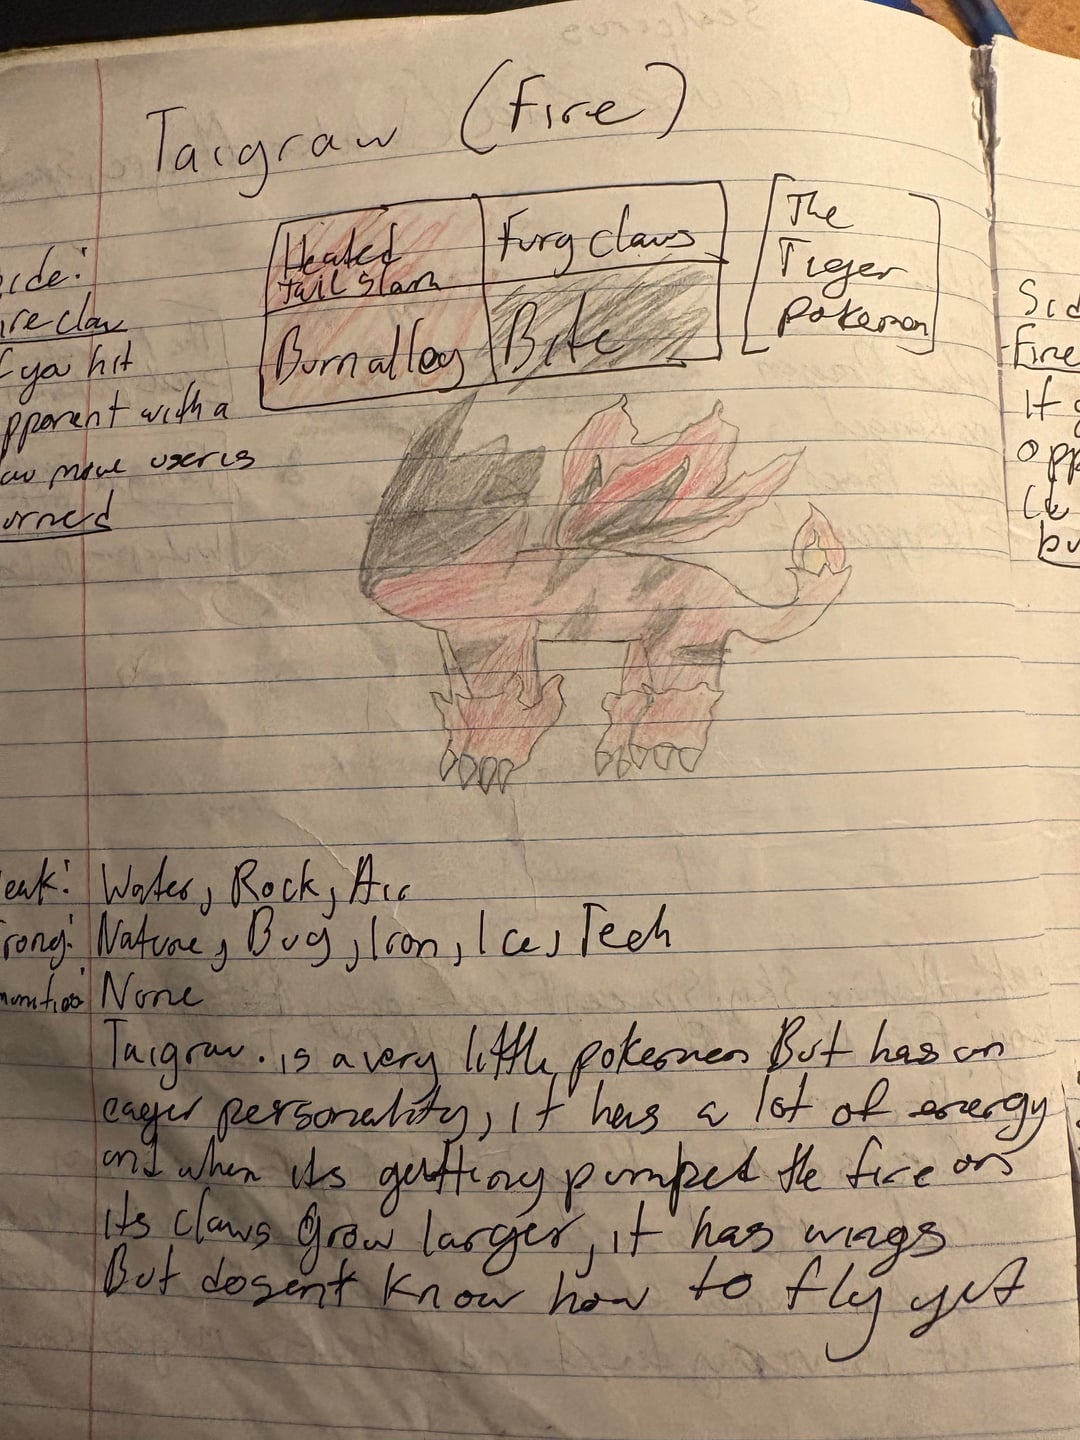 Taigraw (Fire)
Heated
tail slam
Fury claws
Burn alley
Bite
The
Tiger
pokemon
ide:
ire claw
f you hit
pponent with a
aw move user is
urned
Sid
Fire
If
opp
bu
eak: Water, Rock, Air
rong: Nature, Bug, Iron, Ice, Tech
munities None
Taigraw. is a very little pokemon But has an
eager personality, it has a lot of energy
and when its getting pumped the fire on
its claws Grow larger, it has wings
But dosent know how to fly yet